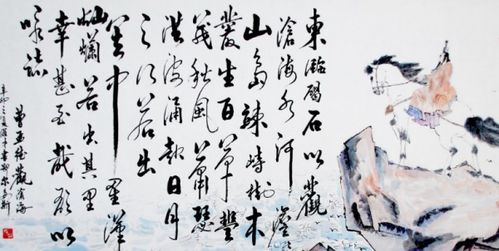 東臨碣石以觀
滄海水何澹澹
山島竦峙樹木
叢生百草豐
茂秋風蕭瑟
洪波涌起日月
之行若出
其中星漢
燦爛若出其里
幸甚至哉歌以
詠志
曹孟德觀滄海